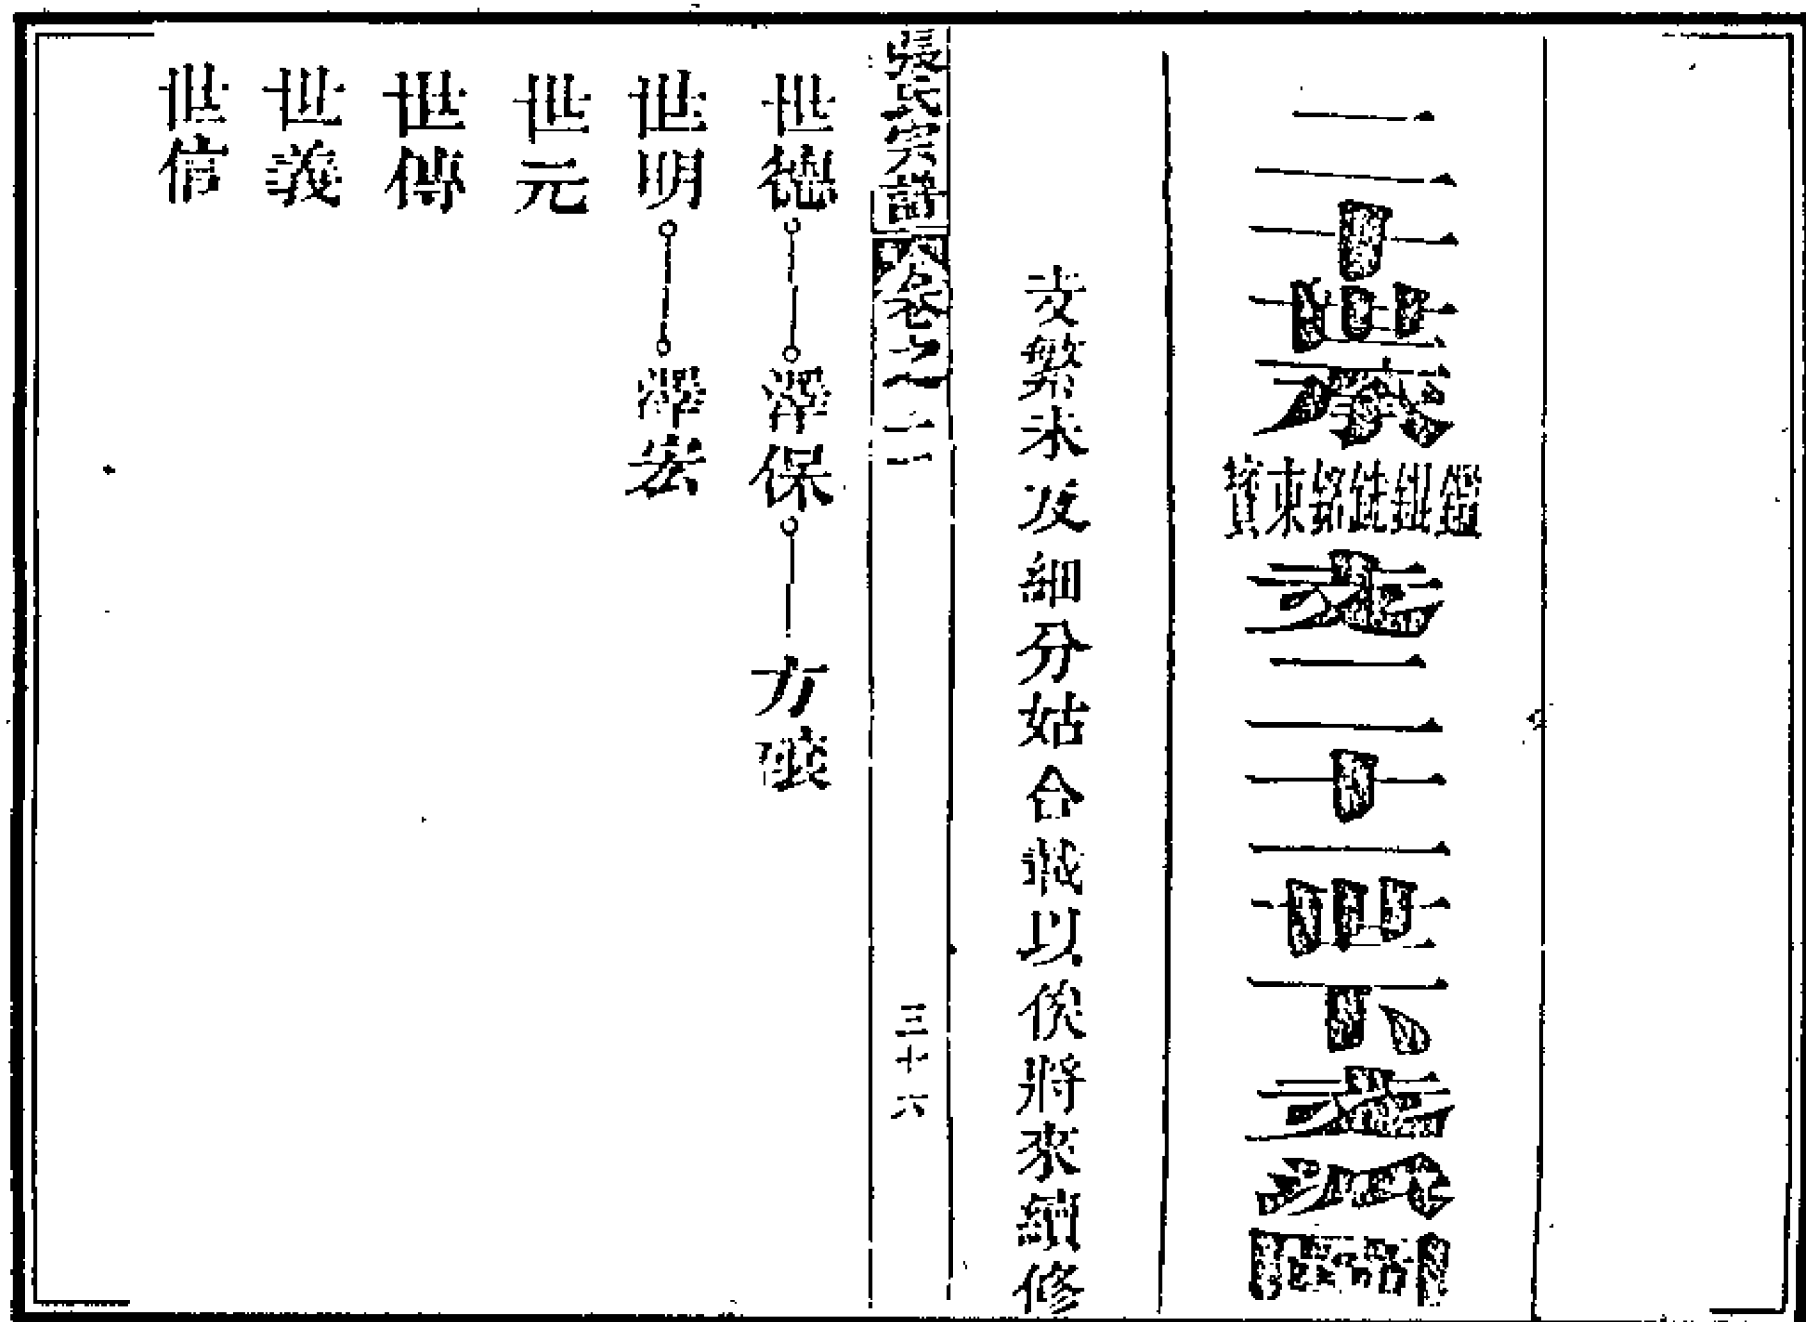 二十世承鑑銘東寶支二十一世下支派圖
支繁未及細分姑合載以俟將來續修
張氏宗譜 卷之二 三十六
世德 澤保 方
世明 澤宏
世元
世傳
世義
世信